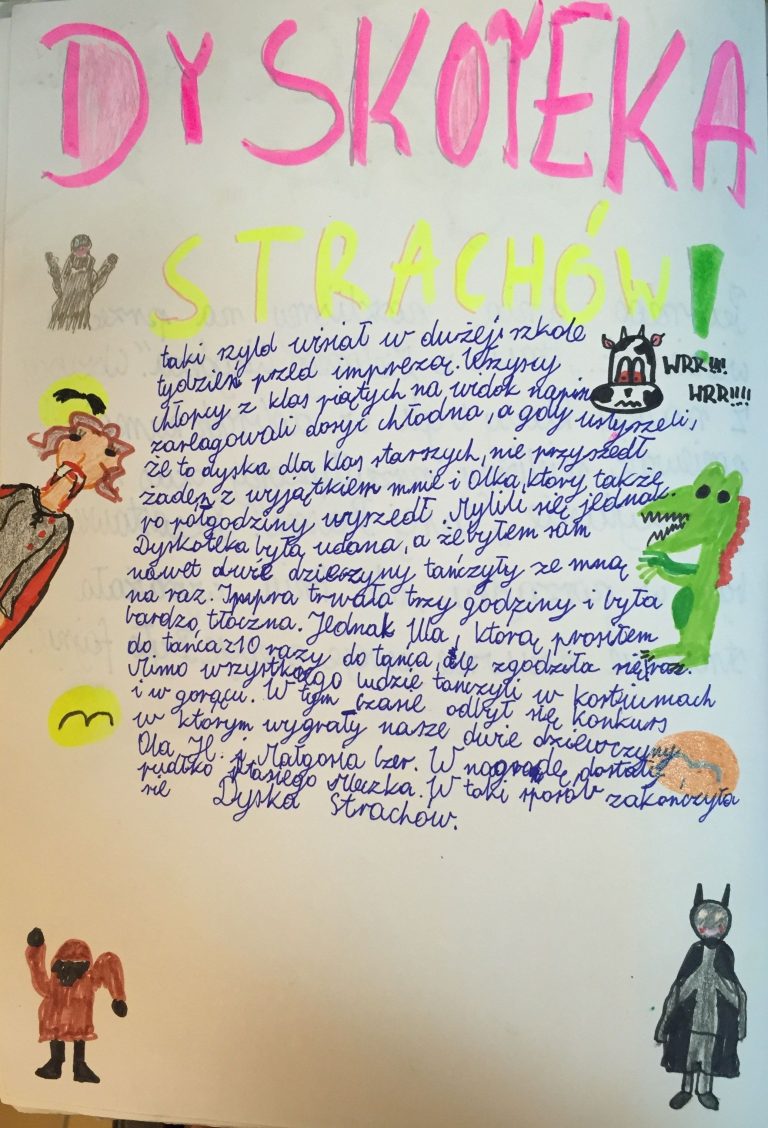 DYSKOTEKA
STRACHÓW!
taki szyld wisiał w dużej szkole
tydzień przed imprezą. Wszyscy
chłopcy z klas piątych na widok napisu
WRR!!!
WRR!!!!
zareagowali dosyć chłodna, a gdy usłyszeli,
że to dyska dla klas starszych, nie przyszedł
żaden z wyjątkiem mnie i Olka, który także
po półgodziny wyszedł. Mylili się jednak.
Dyskoteka była udana, a że byłem sam
nawet dwie dzieczyny tańczyły ze mną
na raz. Impra trwała trzy godziny i była
bardzo tłoczna. Jednak Ula, którą prosiłem
do tańca z 10 razy do tańca, zgodziła się raz.
Mimo wszystkego ludzie tańczyli w kostiumach
i w gorącu. W tym czasie odbył się konkurs
w którym wygrały nasze dwie dziewczyny
Ola H. i Małgosia Czer. W nagrodę dostały
pudłko ptasiego mleczka. W taki sposób zakończyła
się Dyska Strachów.